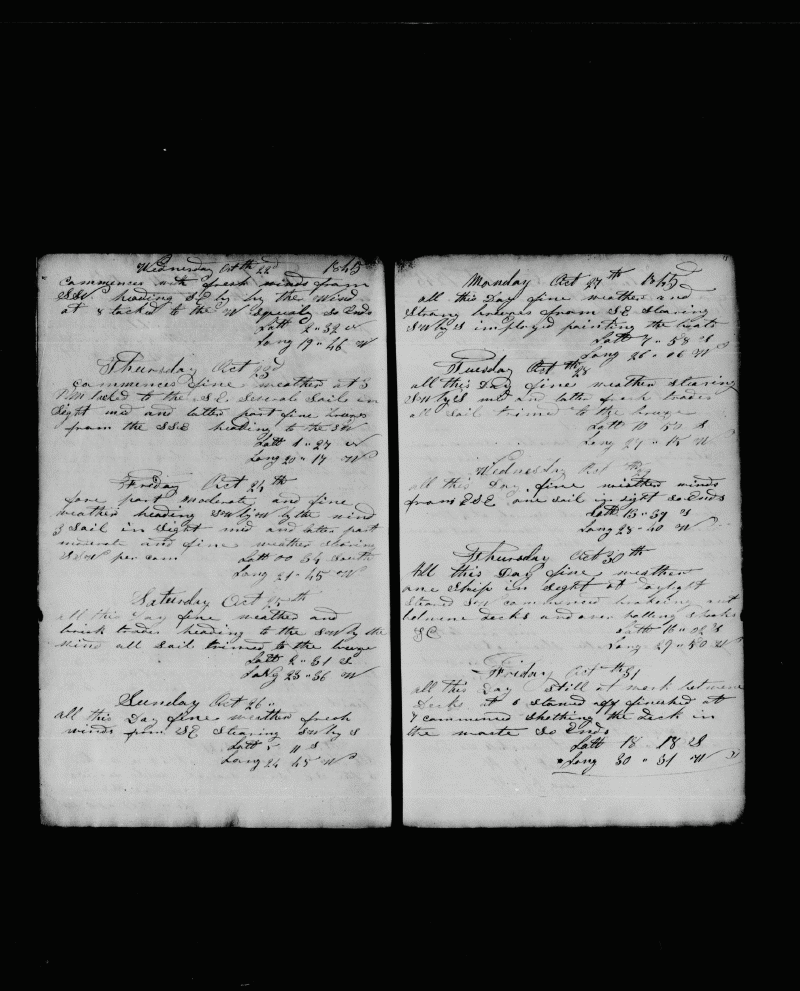 Wednesday Oct th 22d 1845
Commences with fresh winds from
SSW heading SE by by the Wind
at 8 tacked to the W Specaly So Ends
Latt 2 " 32 N
Long 19 " 46 W
Thursday Oct 23d
Commences fine weather at 3
P.M tacked to the SE. Several Sails in
Sight mid and latter part fine breezes
from the SSE heading to the SW
Latt 1 " 27 N
Long 20 " 17 W
Friday Oct 24 th
fore part moderate and fine
weather heading SW by W by the wind
3 Sail in Sight mid and latter part
moderate and fine weather Stearing
SSW per com Latt 00 54 South
Long 21 " 45 W
Saturday Oct 25th
all this Day fine weather and
brisk trades heading to the SW by the
Wind all Sail trimed to the breeze
Latt 2 " 31 S
Long 23 " 36 W
Sunday Oct 26 "
all this Day fine weather fresh
winds from SE Stearing SW by S
Latt 5 " 11 S
Long 24 45 W
Monday Oct 27 th 1845
all this Day fine weather and
Strong breezes from SE Stearing
SW by S imployed painting the boats
Latt 7 " 58 S
Long 26 " 06 W
Tuesday Oct th 28
all this Day fine weather stearing
SW by S mid and latter fresh trades
all Sail trimed to the breeze
Latt 10 50 S
Long 27 " 15 W
Wednesday Oct th 29
all this Day fine weather winds
from ESE one Sail in sight So Ends
Latt 13 " 39 S
Long 28 " 40 W
Thursday Oct 30 th
All this Day fine weather
one Ship in Sight at Daylight
Steared SW commenced breaking out
betwene decks and over holling Shooks
&C Latt 16 " 02 S
Long 29 " 50 W
Friday Oct th 31
all this Day Still at work betwene
Decks at 6 Stowed off finished at
7 commenced Shething the deck in
the waste So Ends
Latt 18 18 S
Long 30 " 31 W